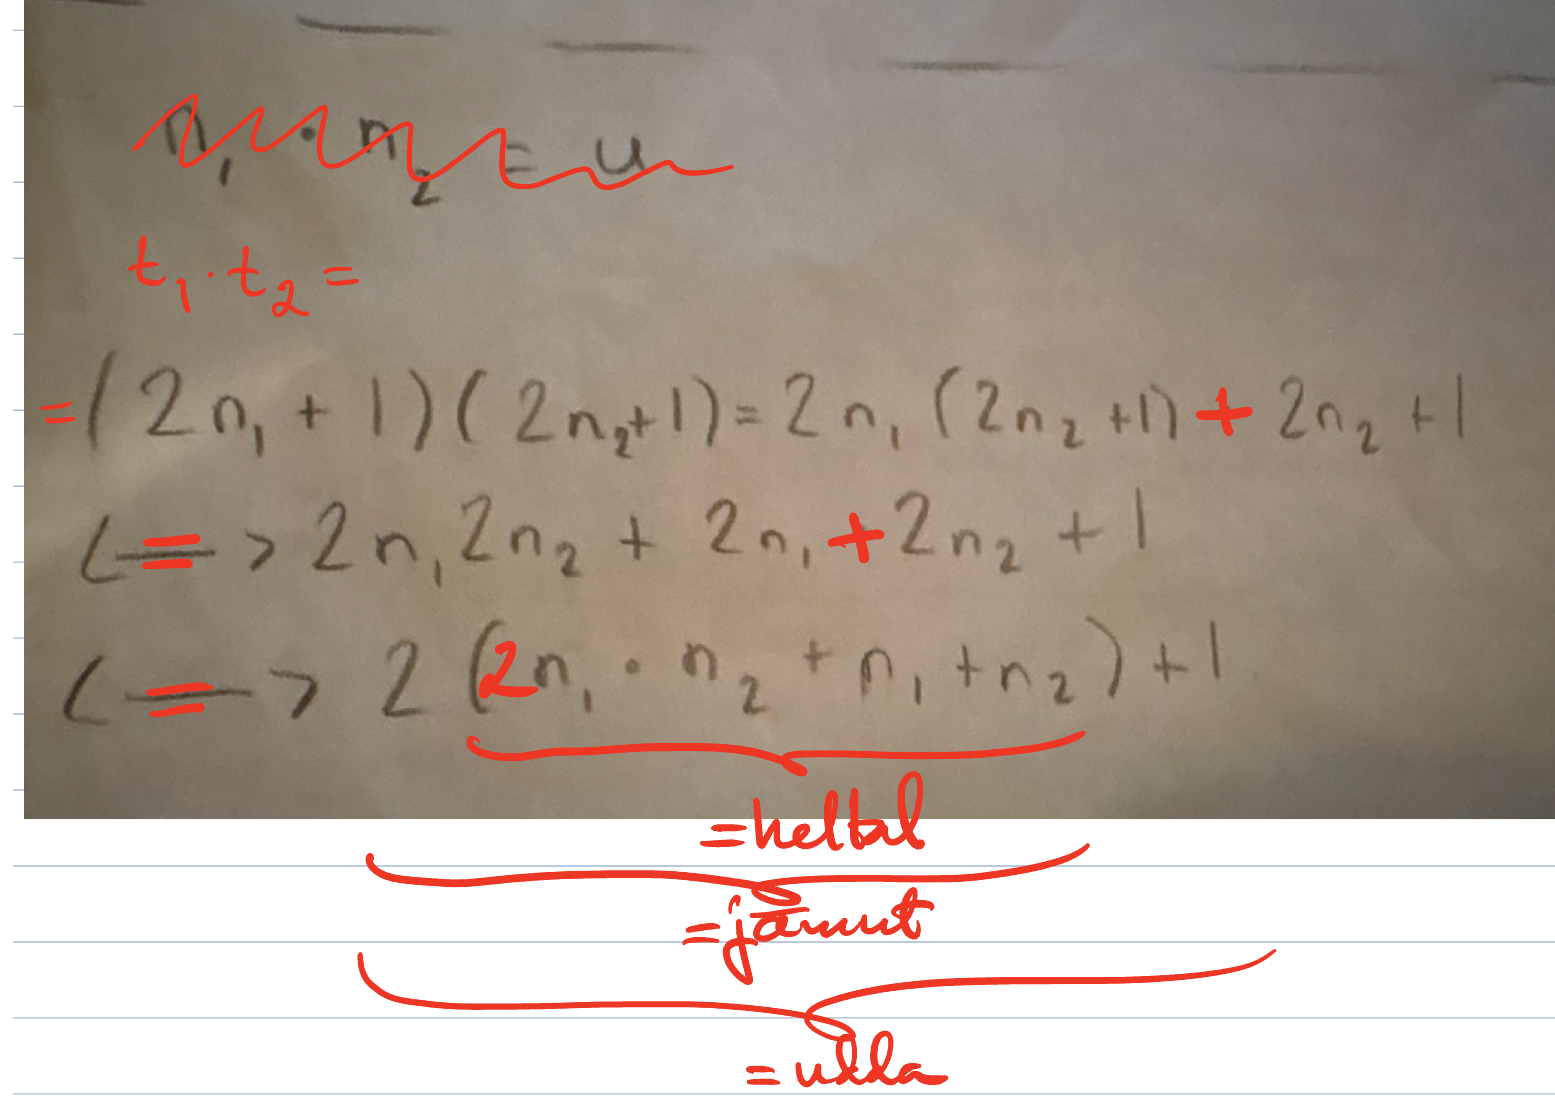 n₁ · n₂ = u
t₁ · t₂ =
= (2n₁ + 1)(2n₂+1) = 2n₁(2n₂+1) + 2n₂ + 1
<=> 2n₁2n₂ + 2n₁ + 2n₂ + 1
<=> 2(2n₁ · n₂ + n₁ + n₂) + 1
= heltal
= jämnt
= udda